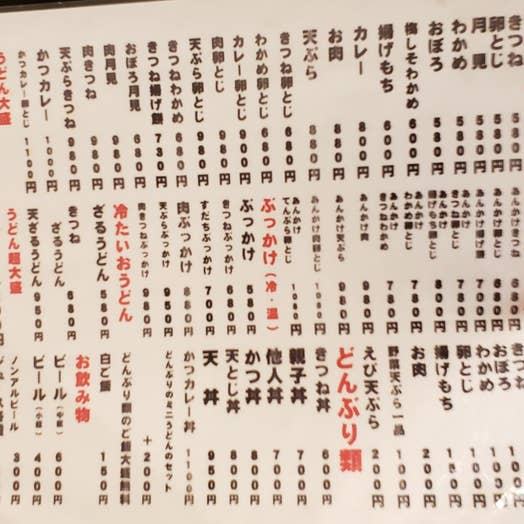 きつね 580円
卵とじ 580円
月見 580円
わかめ 580円
おぼろ 580円
梅しそわかめ 680円
揚げもち 680円
カレー 880円
お肉 880円
天ぷら 880円
きつね卵とじ 680円
わかめ卵とじ 680円
カレー卵とじ 980円
肉卵とじ 900円
天ぷら卵とじ 980円
きつねわかめ 680円
きつね揚げ餅 730円
おぼろ月見 680円
肉月見 980円
肉きつね 980円
天ぷらきつね 980円
かつカレー 1000円
かつカレー卵とじ 1100円
うどん大盛
あんかけ卵とじ
あんかけ揚げ餅
あんかけきつね卵とじ
あんかけ揚げもち卵とじ
あんかけわかめ卵とじ
あんかけきつねわかめ
あんかけ肉 980円
あんかけ天ぷら 980円
あんかけ肉卵とじ 1080円
あんかけてんぷら卵とじ 1080円
ぶっかけ（冷・温）
ぶっかけ 580円
きつねぶっかけ 680円
すだちぶっかけ 700円
肉ぶっかけ 880円
天ぷらぶっかけ 950円
肉きつねぶっかけ 980円
冷たいおうどん
ざるうどん 580円
きつねざるうどん 680円
天ざるうどん 950円
うどん超大盛
きつね
おぼろ
わかめ
卵とじ
揚げもち
お肉 200円
野菜天ぷら一品 100円
えび天ぷら 200円
どんぶり類
きつね丼 600円
親子丼 700円
他人丼 700円
かつ丼 800円
天とじ丼 800円
天丼 950円
かつカレー丼 1100円
どんぶりのミニうどんのセット +200円
どんぶり類のご飯大盛無料
白ご飯 150円
お飲み物
ビール（中瓶） 600円
ビール（小瓶） 400円
ノンアルビール 300円